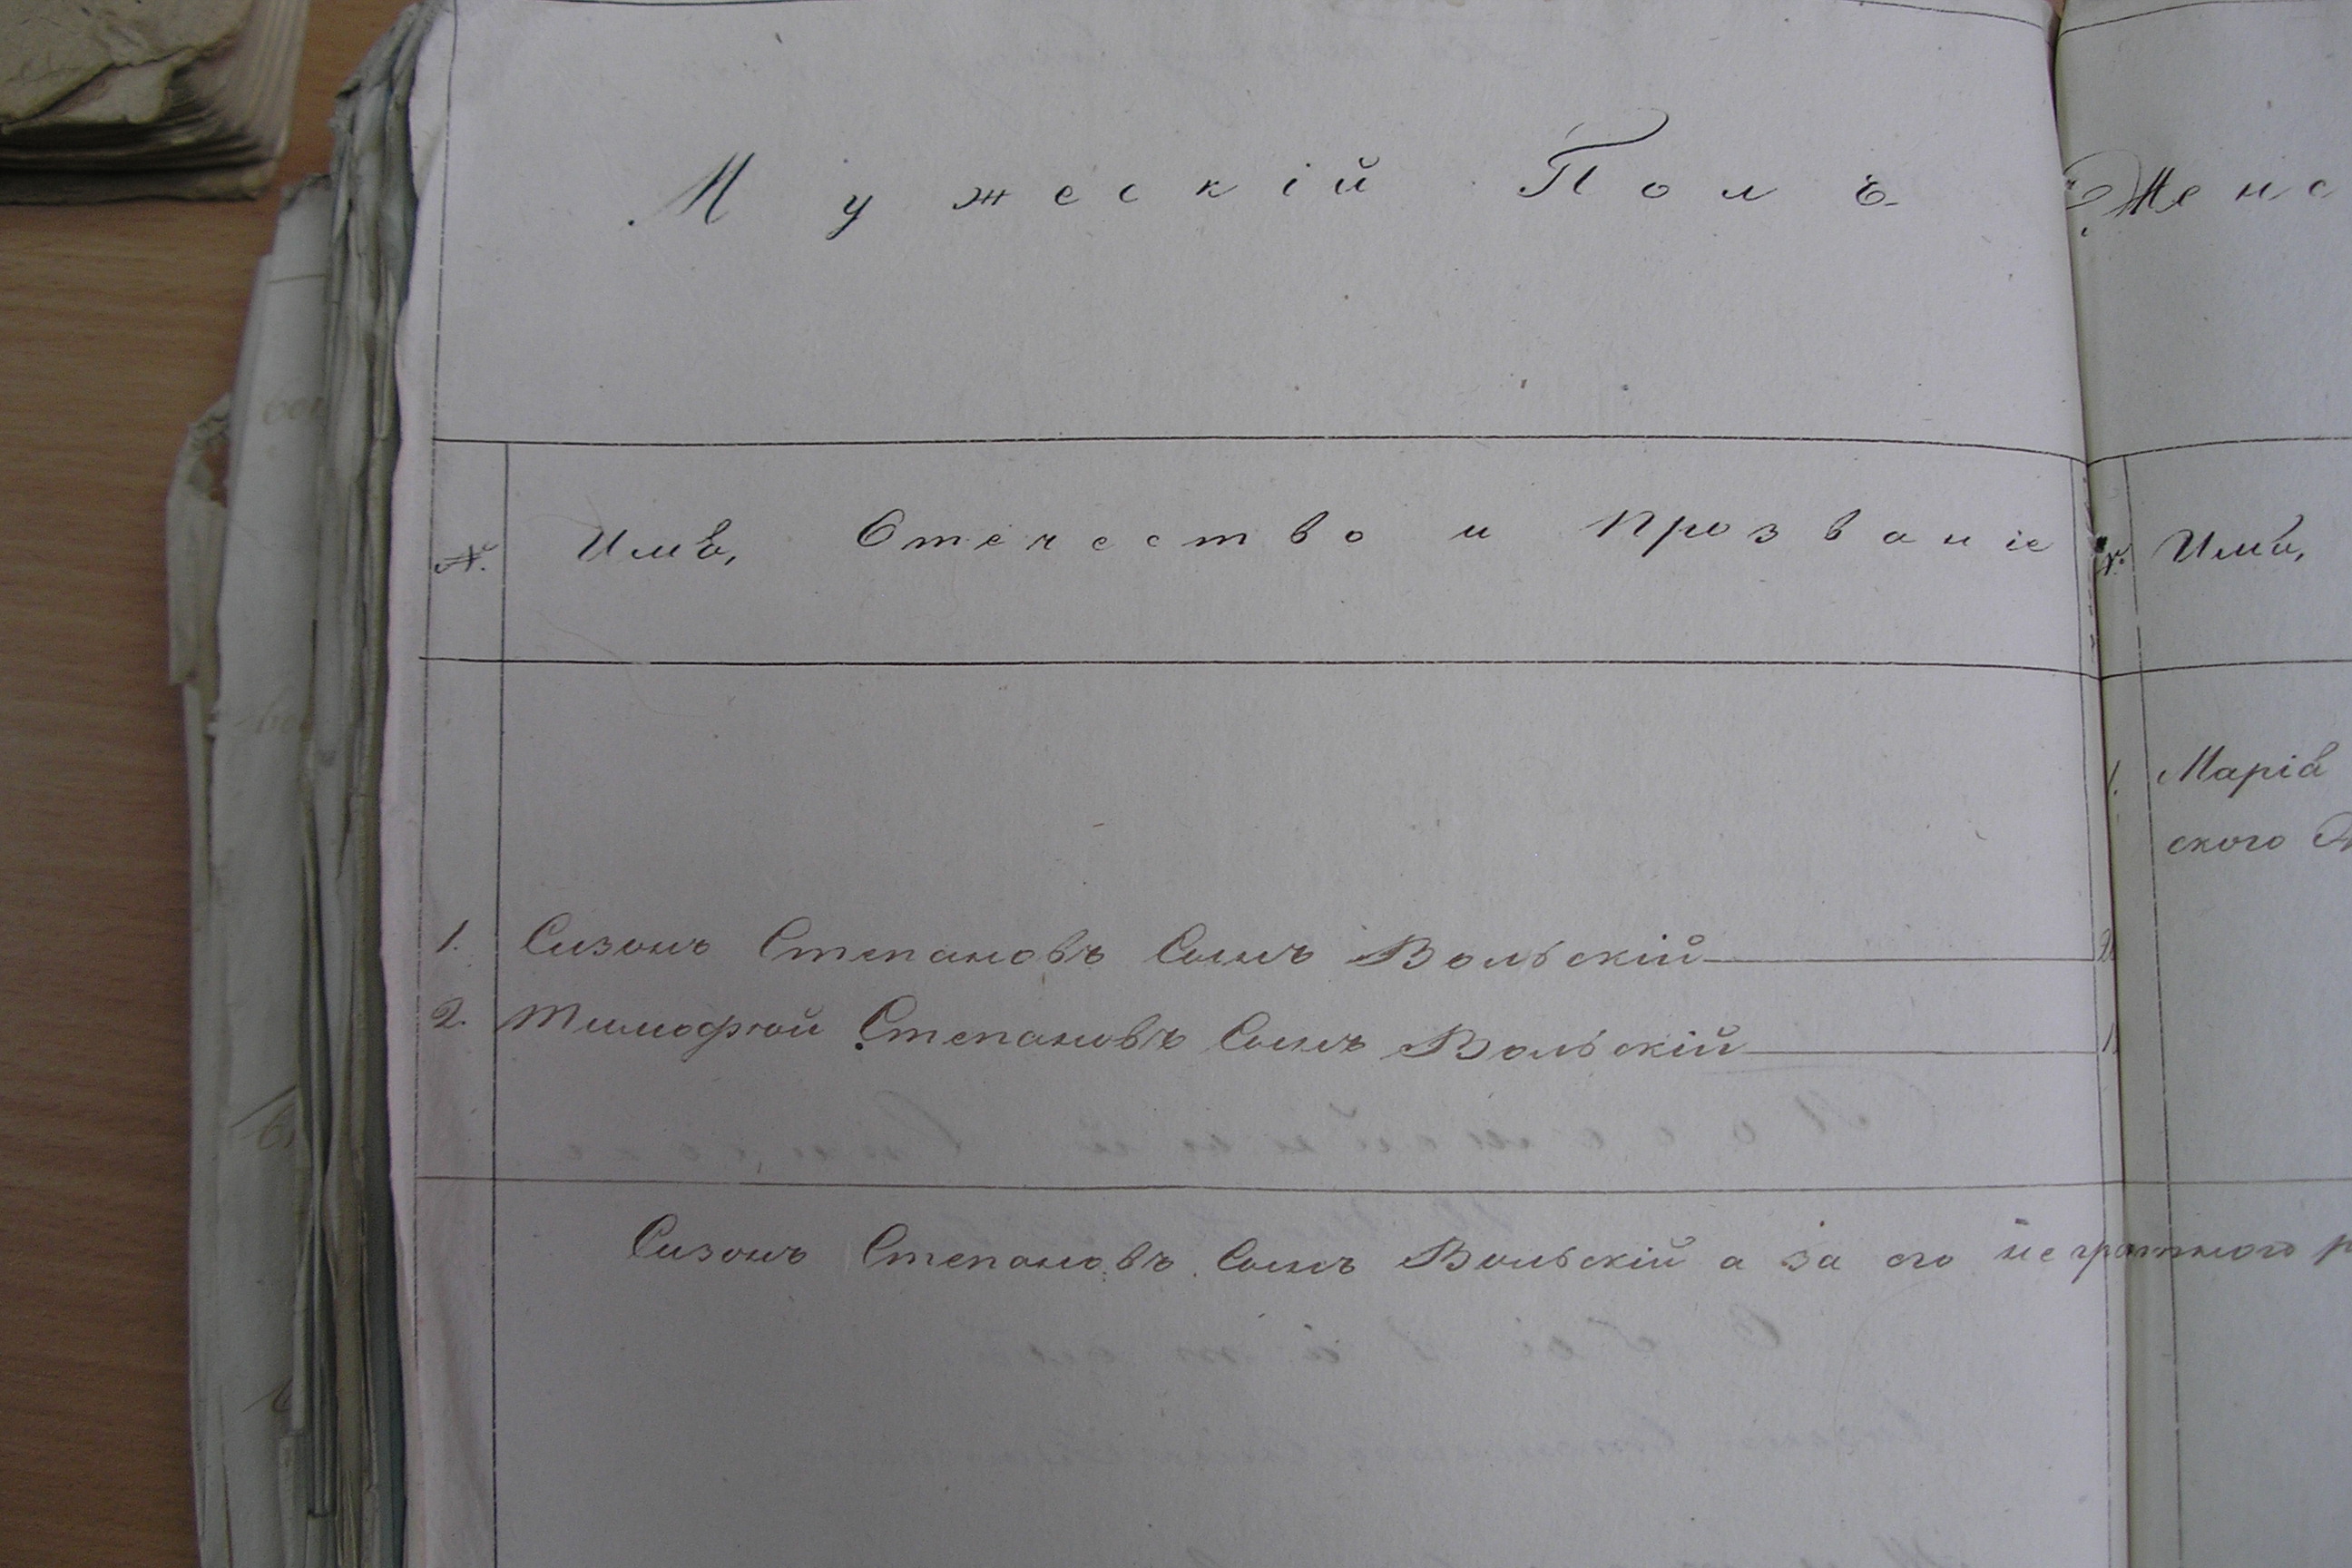 Мужескій Полъ
Женс
№. Имя, Отечество и Прозваніе
№ Имя,
1. Марія
ского
1. Сизонъ Степановъ Сынъ Вольскій
2. Тимофѣй Степановъ Сынъ Вольскій
Сизонъ Степановъ Сынъ Вольскій а за его неграмотного